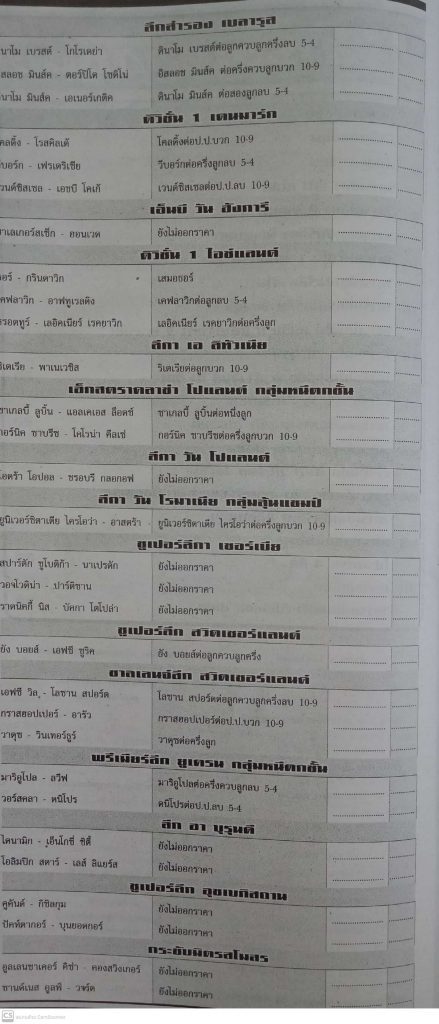 ลีกสำรอง เบลารุส
ดินาโม เบรสต์ - โกโรเดย่า ดินาโม เบรสต์ต่อลูกควบลูกครึ่งลบ 5-4
อิสลอช มินส์ค - ตอร์ปิโด โชดิโน่ อิสลอช มินส์ค ต่อครึ่งควบลูกบวก 10-9
ดินาโม มินส์ค - เอเนอร์เกติค ดินาโม มินส์ค ต่อสองลูกลบ 5-4
ดิวิชั่น 1 เดนมาร์ก
โคลดิ้ง - โรสคิลเด้ โคลดิ้งต่อป.ป.บวก 10-9
วีบอร์ก - เฟรเดริเซีย วีบอร์กต่อครึ่งลูกลบ 5-4
เวนด์ซิสเซล - เอชบี โคเก้ เวนด์ซิสเซลต่อป.ป.ลบ 10-9
เอ็นบี วัน ฮังการี
ซาเลเกอร์สเซ็ก - ฮอนเวด ยังไม่ออกราคา
ดิวิชั่น 1 ไอซ์แลนด์
ธอร์ - กรินดาวิก เสมอธอร์
เคฟลาวิก - อาฟทูเรลดิง เคฟลาวิกต่อลูกลบ 5-4
โทรอตทูร์ - เลอิคเนียร์ เรคยาวิก เลอิคเนียร์ เรคยาวิกต่อครึ่งลูก
ลีกา เอ ลิทัวเนีย
ริเตเรีย - พาเนเวซิส ริเตเรียต่อลูกบวก 10-9
เอ็กสตราคลาซ่า โปแลนด์ กลุ่มหนีตกชั้น
ซาเกลบี้ ลูบิ้น - แอลเคเอส ล็อดซ์ ซาเกลบี้ ลูบิ้นต่อหนึ่งลูก
กอร์นิค ซาบรีซ - โคโรน่า คีลเซ่ กอร์นิค ซาบรีซต่อครึ่งลูกบวก 10-9
ลีกา วัน โปแลนด์
โอดร้า โอปอล - ชรอบรี กลอกอฟ ยังไม่ออกราคา
ลีกา วัน โรมาเนีย กลุ่มลุ้นแชมป์
ยูนิเวอร์ซิตาเตีย ไครโอว่า - อาสตร้า ยูนิเวอร์ซิตาเตีย ไครโอว่าต่อครึ่งลูกบวก 10-9
ซูเปอร์ลีกา เซอร์เบีย
สปาร์ตัก ซูโบติก้า - นาเปรดัก ยังไม่ออกราคา
วอจโวดิน่า - ปาร์ติซาน ยังไม่ออกราคา
ราดนิคกี้ นิส - บัคกา โตโปล่า ยังไม่ออกราคา
ซูเปอร์ลีก สวิตเซอร์แลนด์
ยัง บอยส์ - เอฟซี ซูริค ยัง บอยส์ต่อลูกควบลูกครึ่ง
ชาลเลนจ์ลีก สวิตเซอร์แลนด์
เอฟซี วิล - โลซาน สปอร์ต โลซาน สปอร์ตต่อลูกควบลูกครึ่งลบ 10-9
กราสฮอปเปอร์ - อารัว กราสฮอปเปอร์ต่อป.ป.บวก 10-9
วาดุซ - วินเทอร์ธูร์ วาดุซต่อครึ่งลูก
พรีเมียร์ลีก ยูเครน กลุ่มหนีตกชั้น
มาริอูโปล - ลวีฟ มาริอูโปลต่อครึ่งควบลูกลบ 5-4
วอร์สคลา - ดนิโปร ดนิโปรต่อป.ป.ลบ 5-4
ลีก อา บุรุนดี
ไดนามิก - เอ็นโกซี่ ซิตี้ ยังไม่ออกราคา
โอลิมปิก สตาร์ - เลส์ ลิแยร์ส ยังไม่ออกราคา
ซูเปอร์ลีก อุซเบกิสถาน
คูคันด์ - กิซิลกุม ยังไม่ออกราคา
ปัคห์ตากอร์ - บุนยอดกอร์ ยังไม่ออกราคา
กระชับมิตรสโมสร
อูลเลนซาเคอร์ คิซ่า - คองสวิงเกอร์ ยังไม่ออกราคา
ซานด์เนส อูลฟ์ - วาร์ด ยังไม่ออกราคา
CS สแกนด้วย CamScanner